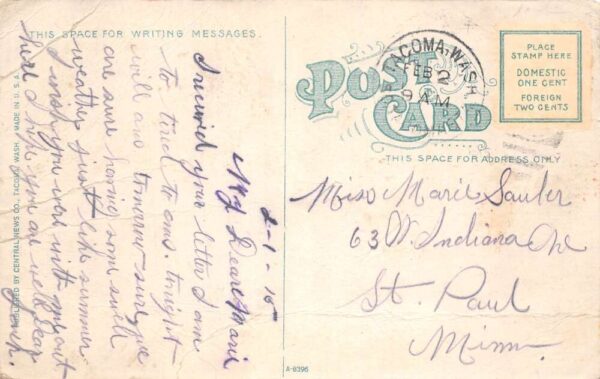 THIS SPACE FOR WRITING MESSAGES.
POST CARD
TACOMA, WASH
FEB 2
9 AM
PLACE
STAMP HERE
DOMESTIC
ONE CENT
FOREIGN
TWO CENTS
THIS SPACE FOR ADDRESS ONLY
Miss Marie
63 W Indiana Ave
St. Paul
Minn
2-1-15
My Dear Marie
I received your letter I am
to tired to ans. tonight
will ans tomorrow- sure we
are sure having some swell
weather just like summer
I wish you were with me out
here I hope you are well dear
PUBLISHED BY CENTRAL NEWS CO., TACOMA, WASH. MADE IN U.S.A.
A-8396